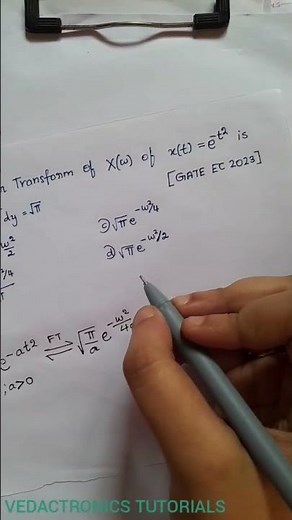 Transform of X(ω) of x(t) = e^-t² is
dy = √π
[GATE EC 2023]
c) √π e^-ω²/4
d) √π e^-ω²/2
e^-at² FT ⇌ √π/a e^-ω²/4a
; a>0
VEDACTRONICS TUTORIALS